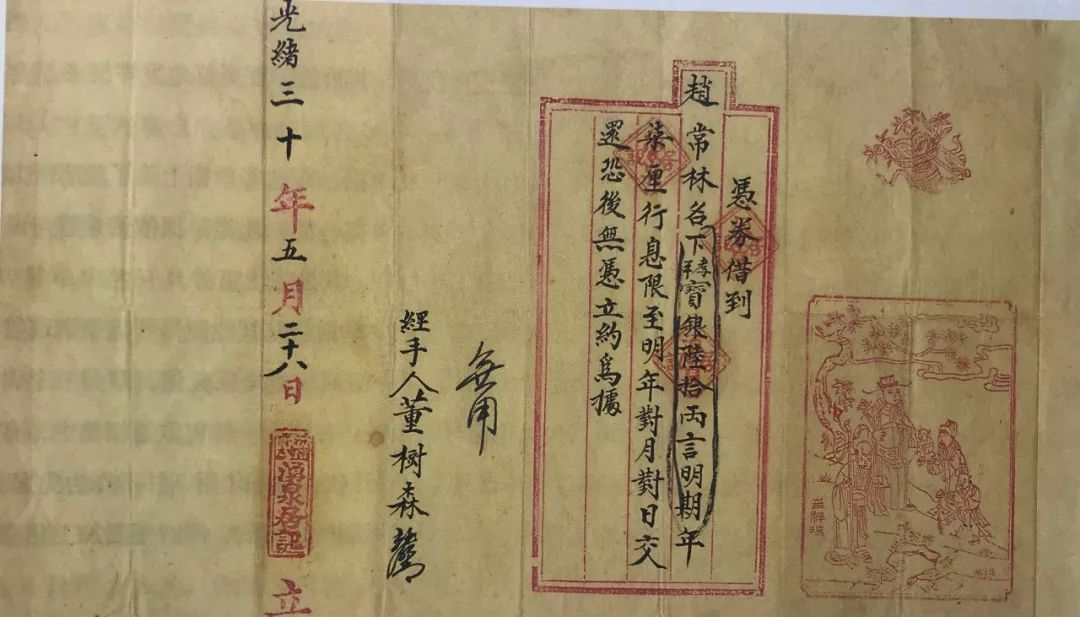 憑券借到
趙常林名下孝平寶銀陸拾兩言明期年
柒厘行息限至明年對月對日交
還恐後無憑立約爲據
無用
經手人董树森
光緒三十年五月二十八日 湧泉居記 立